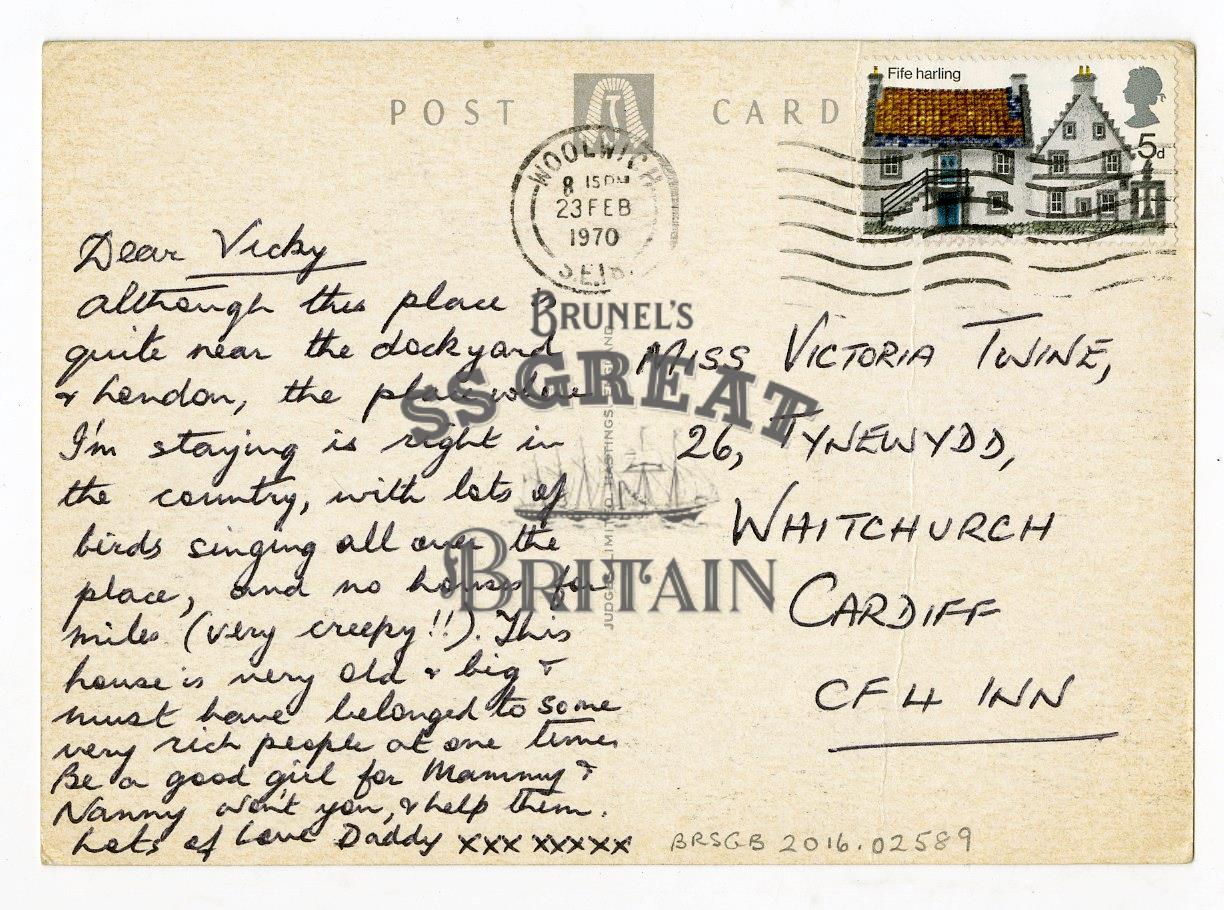 POST CARD
Fife harling
5d
WOOLWICH
8 15PM
23 FEB
1970
S.E.18.
Dear Vicky
Although this place is
quite near the dockyard
& London, the place where
I'm staying is right in
the country, with lots of
birds singing all over the
place, and no houses for
miles (very creepy!!). This
house is very old & big &
must have belonged to some
very rich people at one time.
Be a good girl for Mammy &
Nanny won't you, & help them.
Lots of Love Daddy xxx xxxxx
MISS VICTORIA TWINE,
26, TYNEWYDD,
WHITCHURCH
CARDIFF
CF4 1NN
JUDGES LIMITED HASTINGS ENGLAND
BRUNEL'S
SS GREAT
BRITAIN
BRSGB 2016.02589